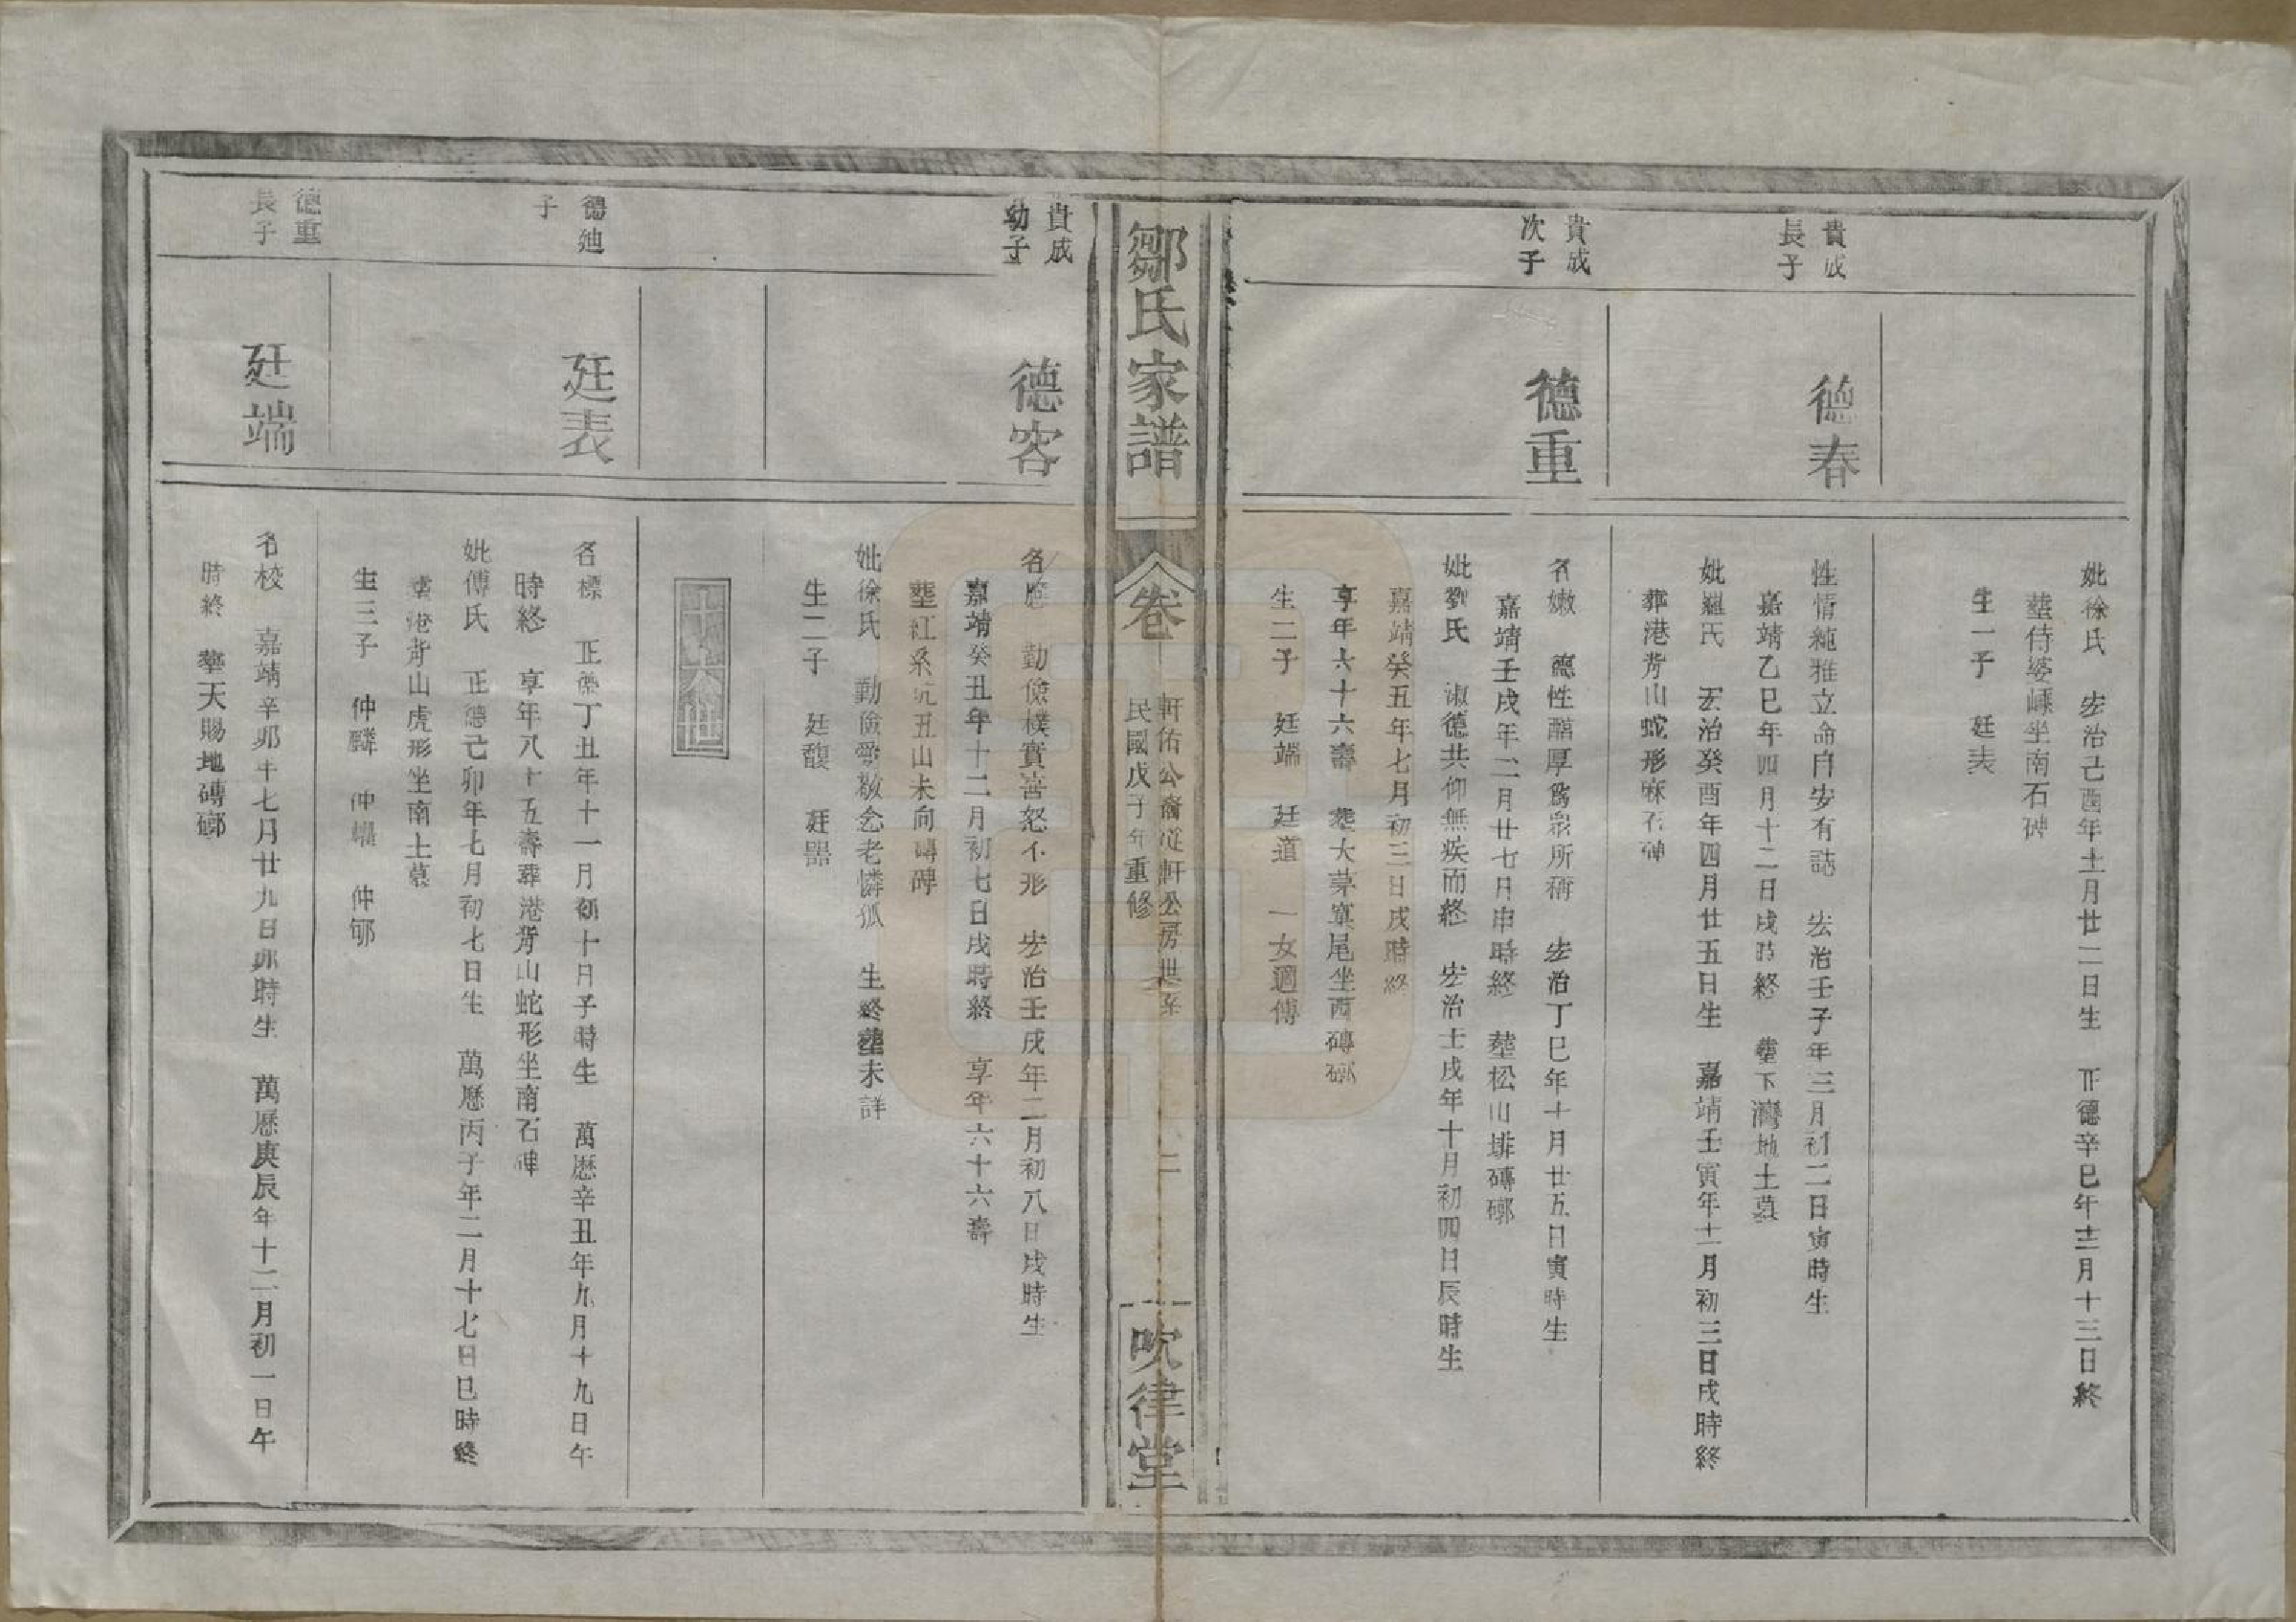 妣徐氏　宏治己酉年十一月廿二日生　正德辛巳年十二月十三日終
塟侍婆嵊坐南石碑
生一子　廷表
貴成
長子
德春
性情純雅立命自安有誌　宏治壬子年三月初二日寅時生
嘉靖乙巳年四月十二日戌時終　塟下灣地土墓
妣羅氏　宏治癸酉年四月廿五日生　嘉靖壬寅年十一月初三日戌時終
葬港背山蛇形麻石碑
貴成
次子
德重
名嫩　德性醕厚爲衆所稱　宏治丁巳年十月廿五日寅時生
嘉靖壬戌年二月廿七日申時終　塟松山排磚槨
妣劉氏　淑德共仰無疾而終　宏治壬戌年十月初四日辰時生
嘉靖癸五年七月初三日戌時終
享年六十六壽　塟大茅窠尾坐西磚槨
生二子　廷端　廷道　一女適傅
鄒氏家譜
卷一
軒佑公裔從軒公房世系
民國戊子年重修
二
吹律堂
貴成
幼子
德容
名　勤儉樸實喜怒不形　宏治壬戌年二月初八日戌時生
嘉靖癸丑年十二月初七日戌時終　享年六十六壽
塟紅系坑丑山未向磚碑
妣徐氏　勤儉愛敬念老憐孤　生終塟未詳
生二子　廷馥　廷器
十六世
德廸
子
廷表
名標　正德丁丑年十一月初十日子時生　萬歷辛丑年九月十九日午
時終　享年八十五壽葬港背山蛇形坐南石碑
妣傅氏　正德己卯年七月初七日生　萬歷丙子年二月十七日巳時終
塟港背山虎形坐南土墓
生三子　仲麟　仲　仲郇
德重
長子
廷端
名校　嘉靖辛卯年七月廿九日卯時生　萬歷庚辰年十二月初一日午
時終　塟天賜地磚槨